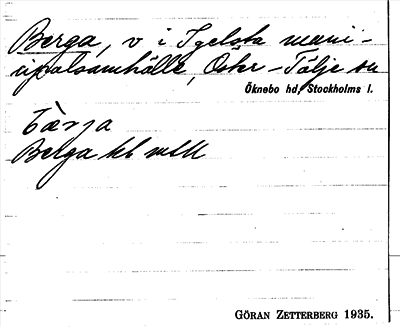 Berga, v i Igelsta muni-
cipalsamhälle, Öster-Tälje sn
Öknebo hd, Stockholms l.
Bærja
Berga hl
GÖRAN ZETTERBERG 1935.